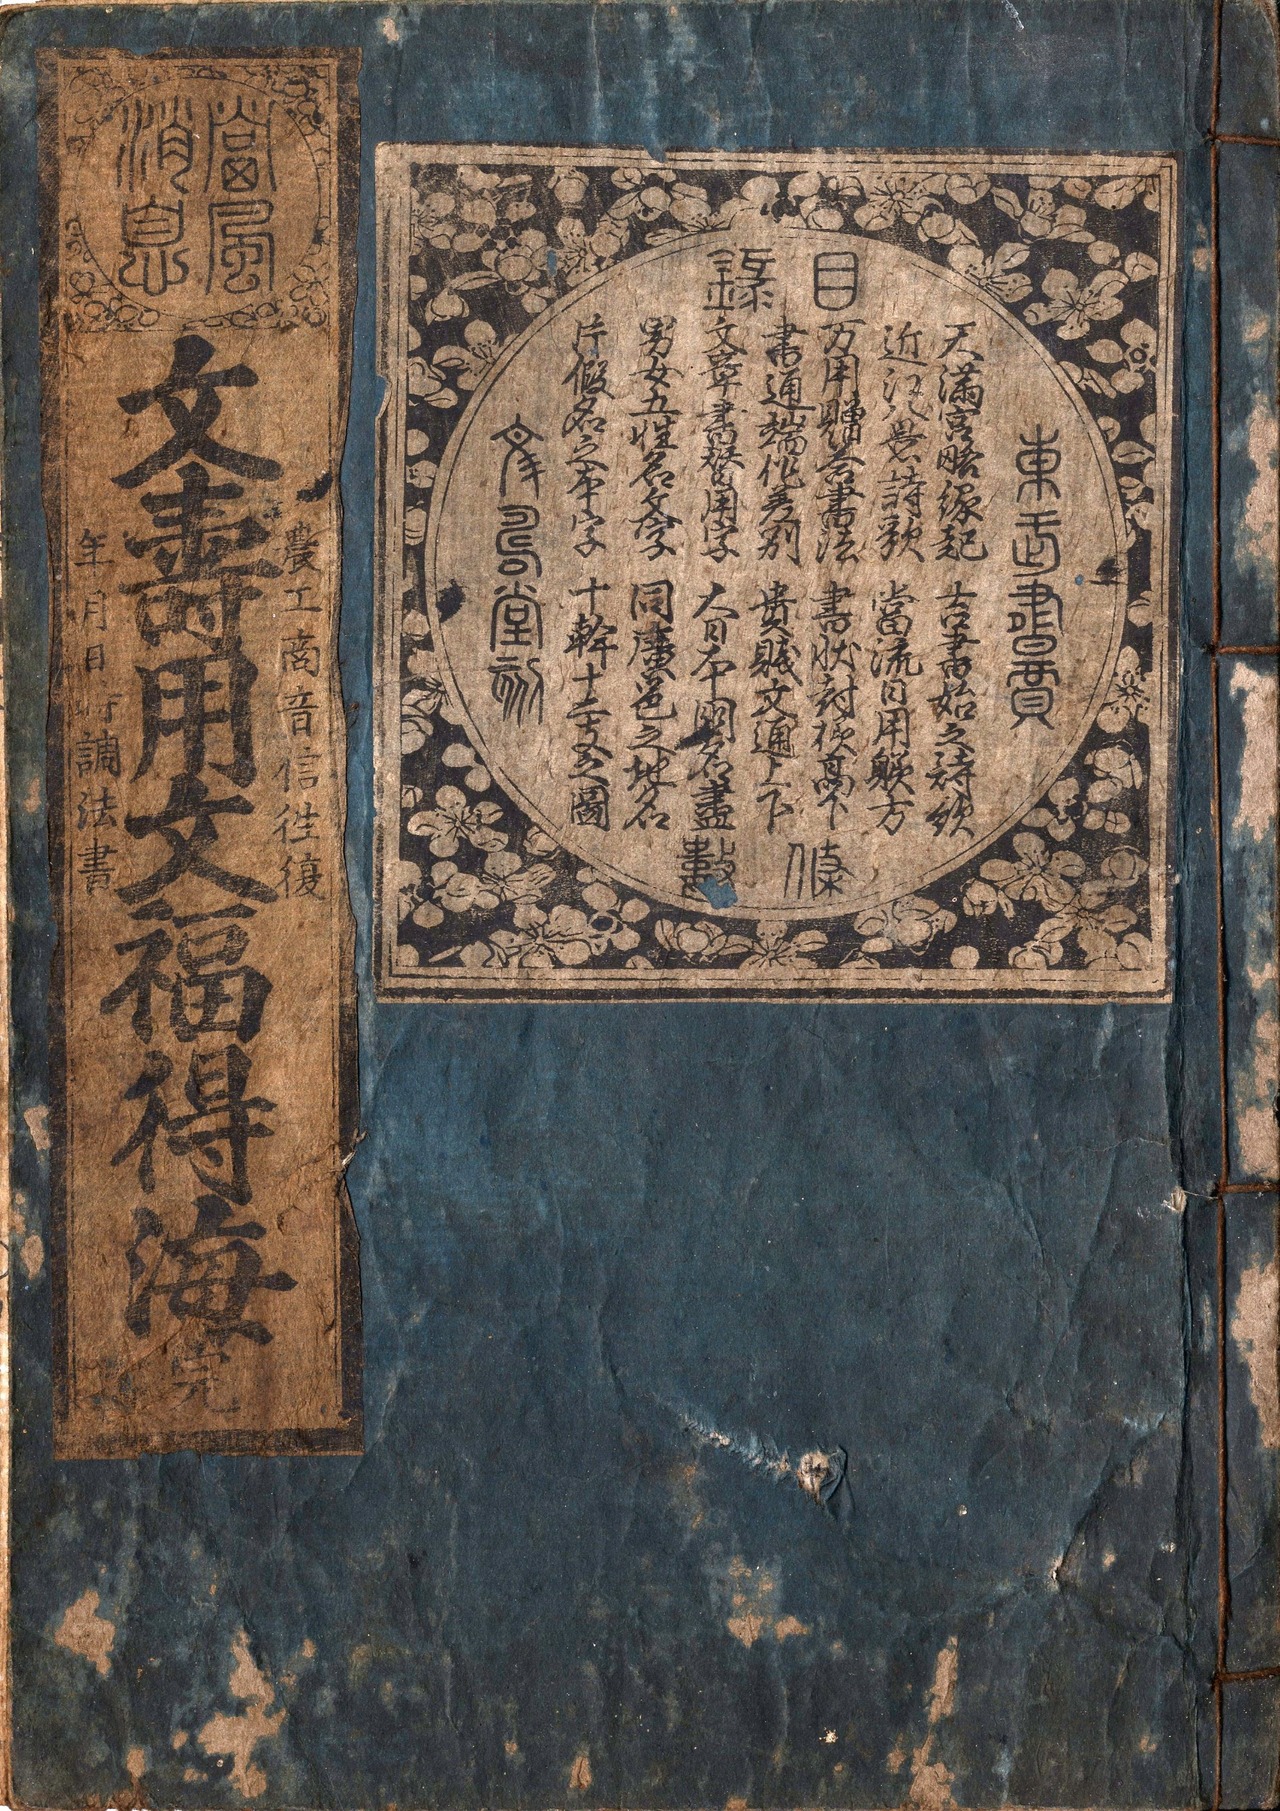 目録
東武書賈
天滿宮略縁起
吉書始之詩歌
近江八景詩歌
當流日用躾方
万用贈答書法
書状封樣高下
書通端作差別
貴賎文通上下
文章書替用字
大日本国名盡
男女五性名文字
同廣邑之地名
片假名之本字
十幹十二支之圖
條數
堂刻
當風
消息
農工商音信徃復
文壽用文福得海
完
年月日時調法書